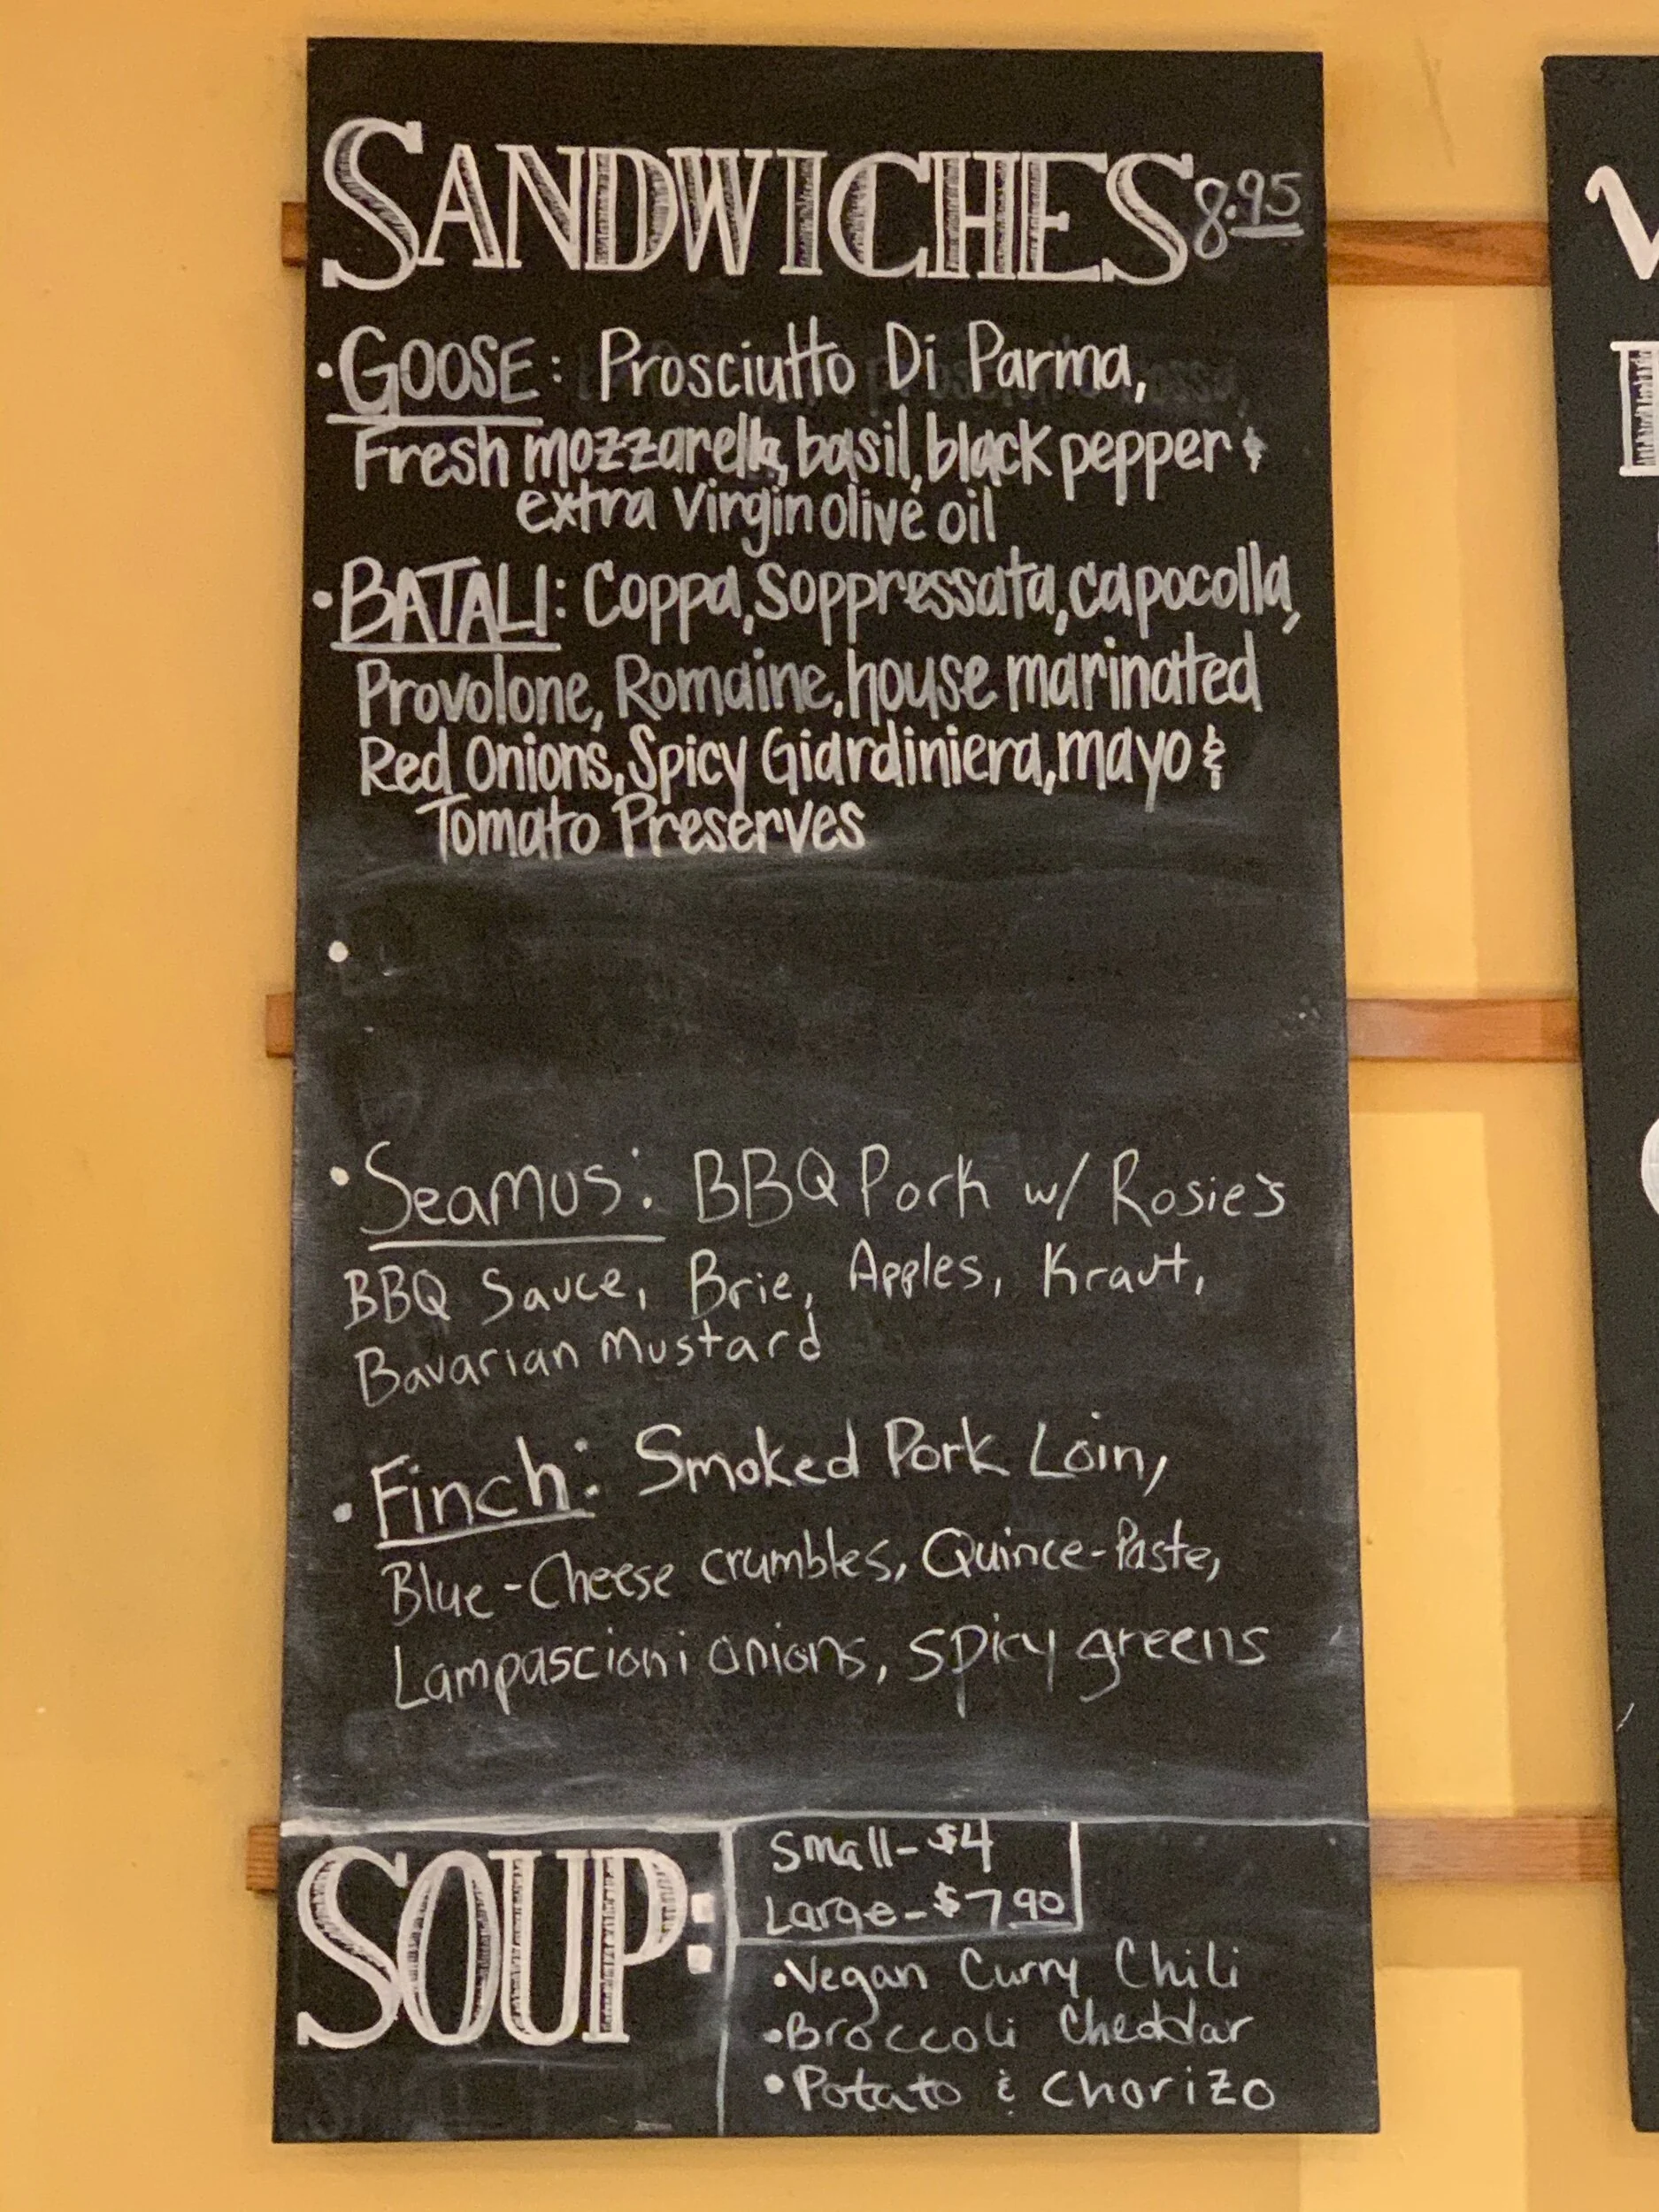 SANDWICHES 8.95
• GOOSE: Prosciutto Di Parma,
Fresh mozzarella, basil, black pepper &
extra virgin olive oil
• BATALI: Coppa, Soppressata, capocolla,
Provolone, Romaine, house marinated
Red Onions, Spicy Giardiniera, mayo &
Tomato Preserves
•
• Seamus: BBQ Pork w/ Rosie's
BBQ Sauce, Brie, Apples, Kraut,
Bavarian Mustard
• Finch: Smoked Pork Loin,
Blue-Cheese crumbles, Quince-Paste,
Lampascioni onions, spicy greens
SOUP:
Small-$4
Large-$7.90
• Vegan Curry Chili
• Broccoli Cheddar
• Potato & Chorizo